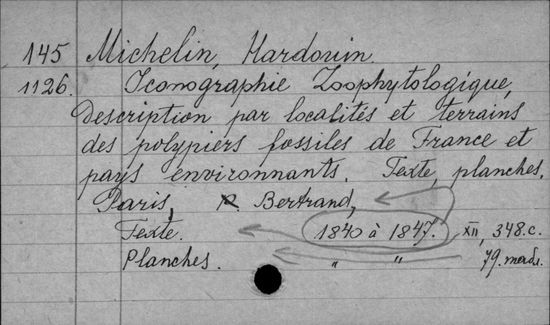 145 Michelin, Hardouin.
1126. Iconographie Zoophytologique,
Description par localités et terrains
des polypiers fossiles de France et
pays environnants. Texte, planches.
Paris, P. Bertrand,
Texte. 1840 à 1847. XII, 348.c.
Planches. " " 79.